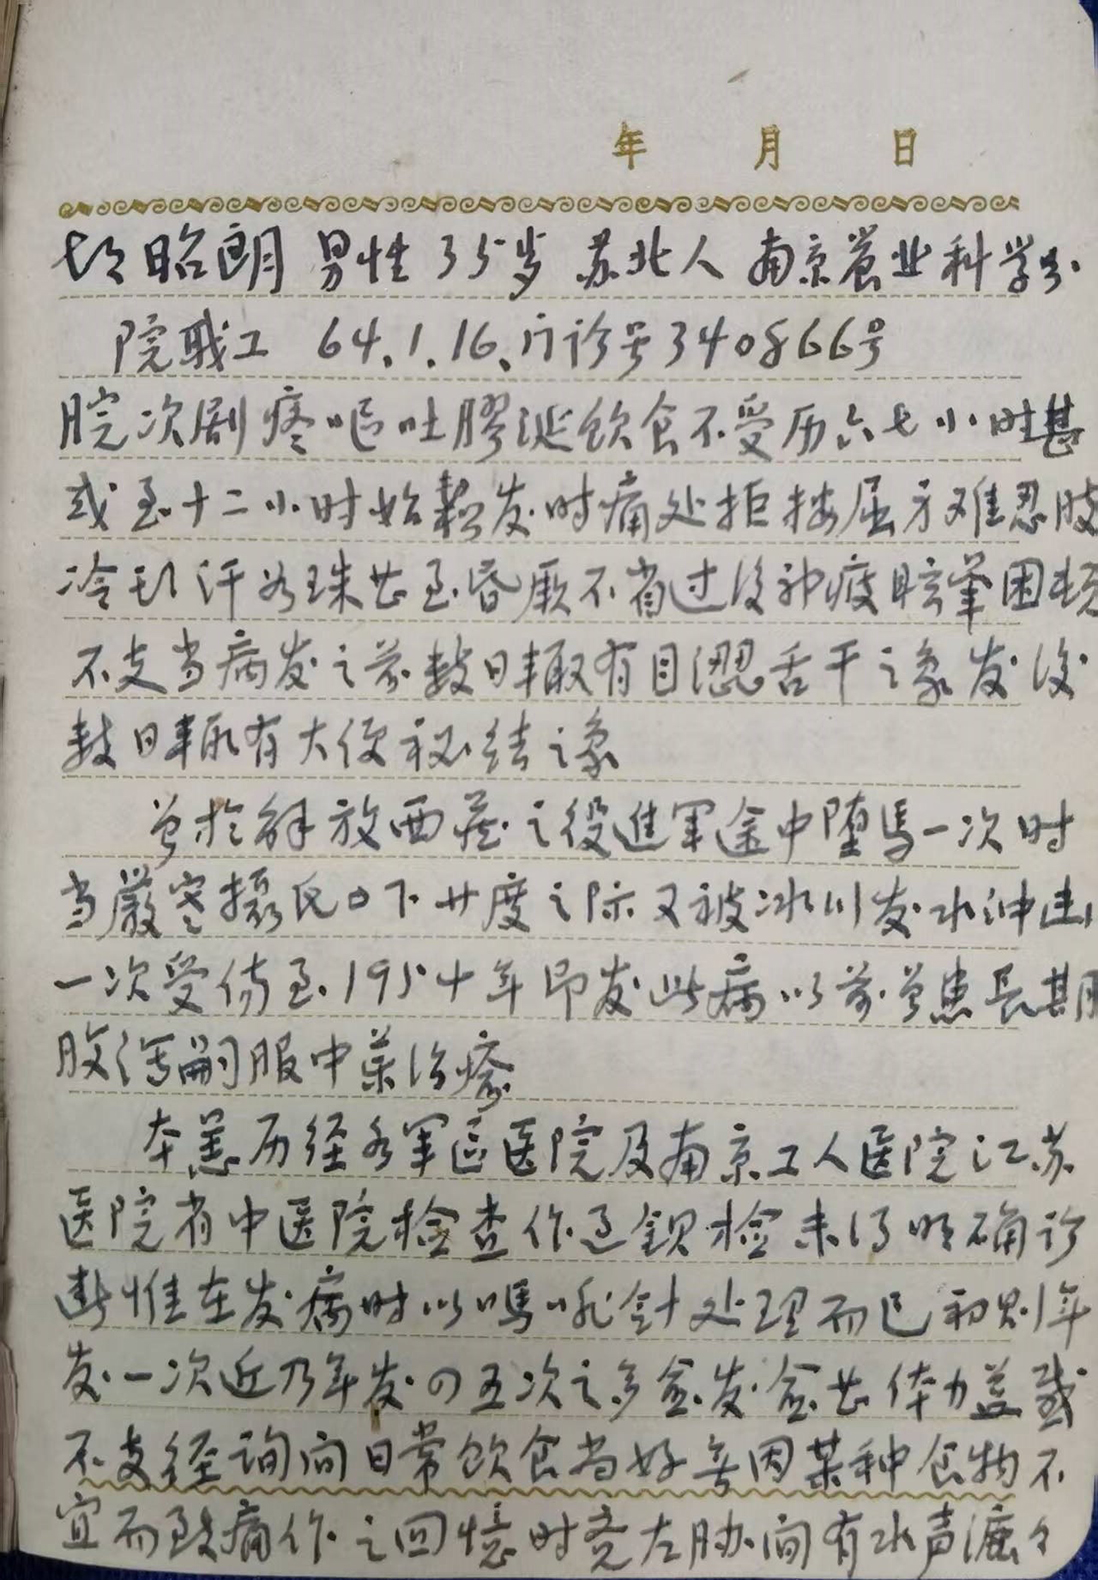 年 月 日
昭朗 男性 35岁 苏北人 南京农业科学分
院职工 64.1.16、门诊号340866号
脘次剧疼呕吐膠涎饮食不受历六七小时甚
或至十二小时始鬆发时痛处拒按屈亏难忍肢
冷形汗如珠甚至昏厥不省过后神疲眩晕困顿
不支当病发之前数日辄有目涩舌干之象发后
数日辄有大便秘结之象
曾於解放西藏之役進军途中堕馬一次时
当嚴寒攝氏0下廿度之际又被冰川发水冲击
一次受伤至195十年即发此病以前曾患長期
腹泻嗣服中药治疗
本恙历经各军區医院及南京工人医院江苏
医院省中医院检查作过鋇检未得明确诊
断惟在发病时以嗎啡針处理而已初则1年
发一次近乃年发四五次之多愈发愈甚体力益感
不支经询问日常饮食尚好無因某种食物不
宜而致痛作之回憶时觉左胁间有水声漉々